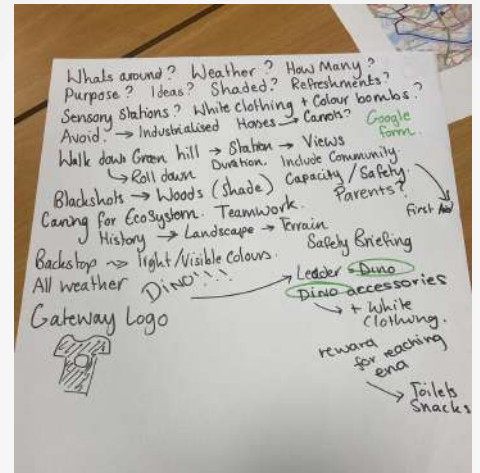 Whats around? Weather? How Many?
Purpose? Ideas? Shaded? Refreshments?
Sensory Stations? White clothing + Colour bombs?
Avoid. → Industrialised Horses → Carrots? Google form.
Walk down Green hill → Station → Views
↳ Roll down Duration. Include Community.
Blackshots → Woods (Shade) Capacity / Safety.
Parents?
First Aid
Caring for EcoSystem. Teamwork.
History → Landscape → Terrain
Safety Briefing
Backstop ~> light/Visible Colours.
All weather DINO!!!! → Leader = Dino
Dino accessories
↳ + White Clothing.
Gateway Logo
reward for reaching end
→ Toilets
Snacks